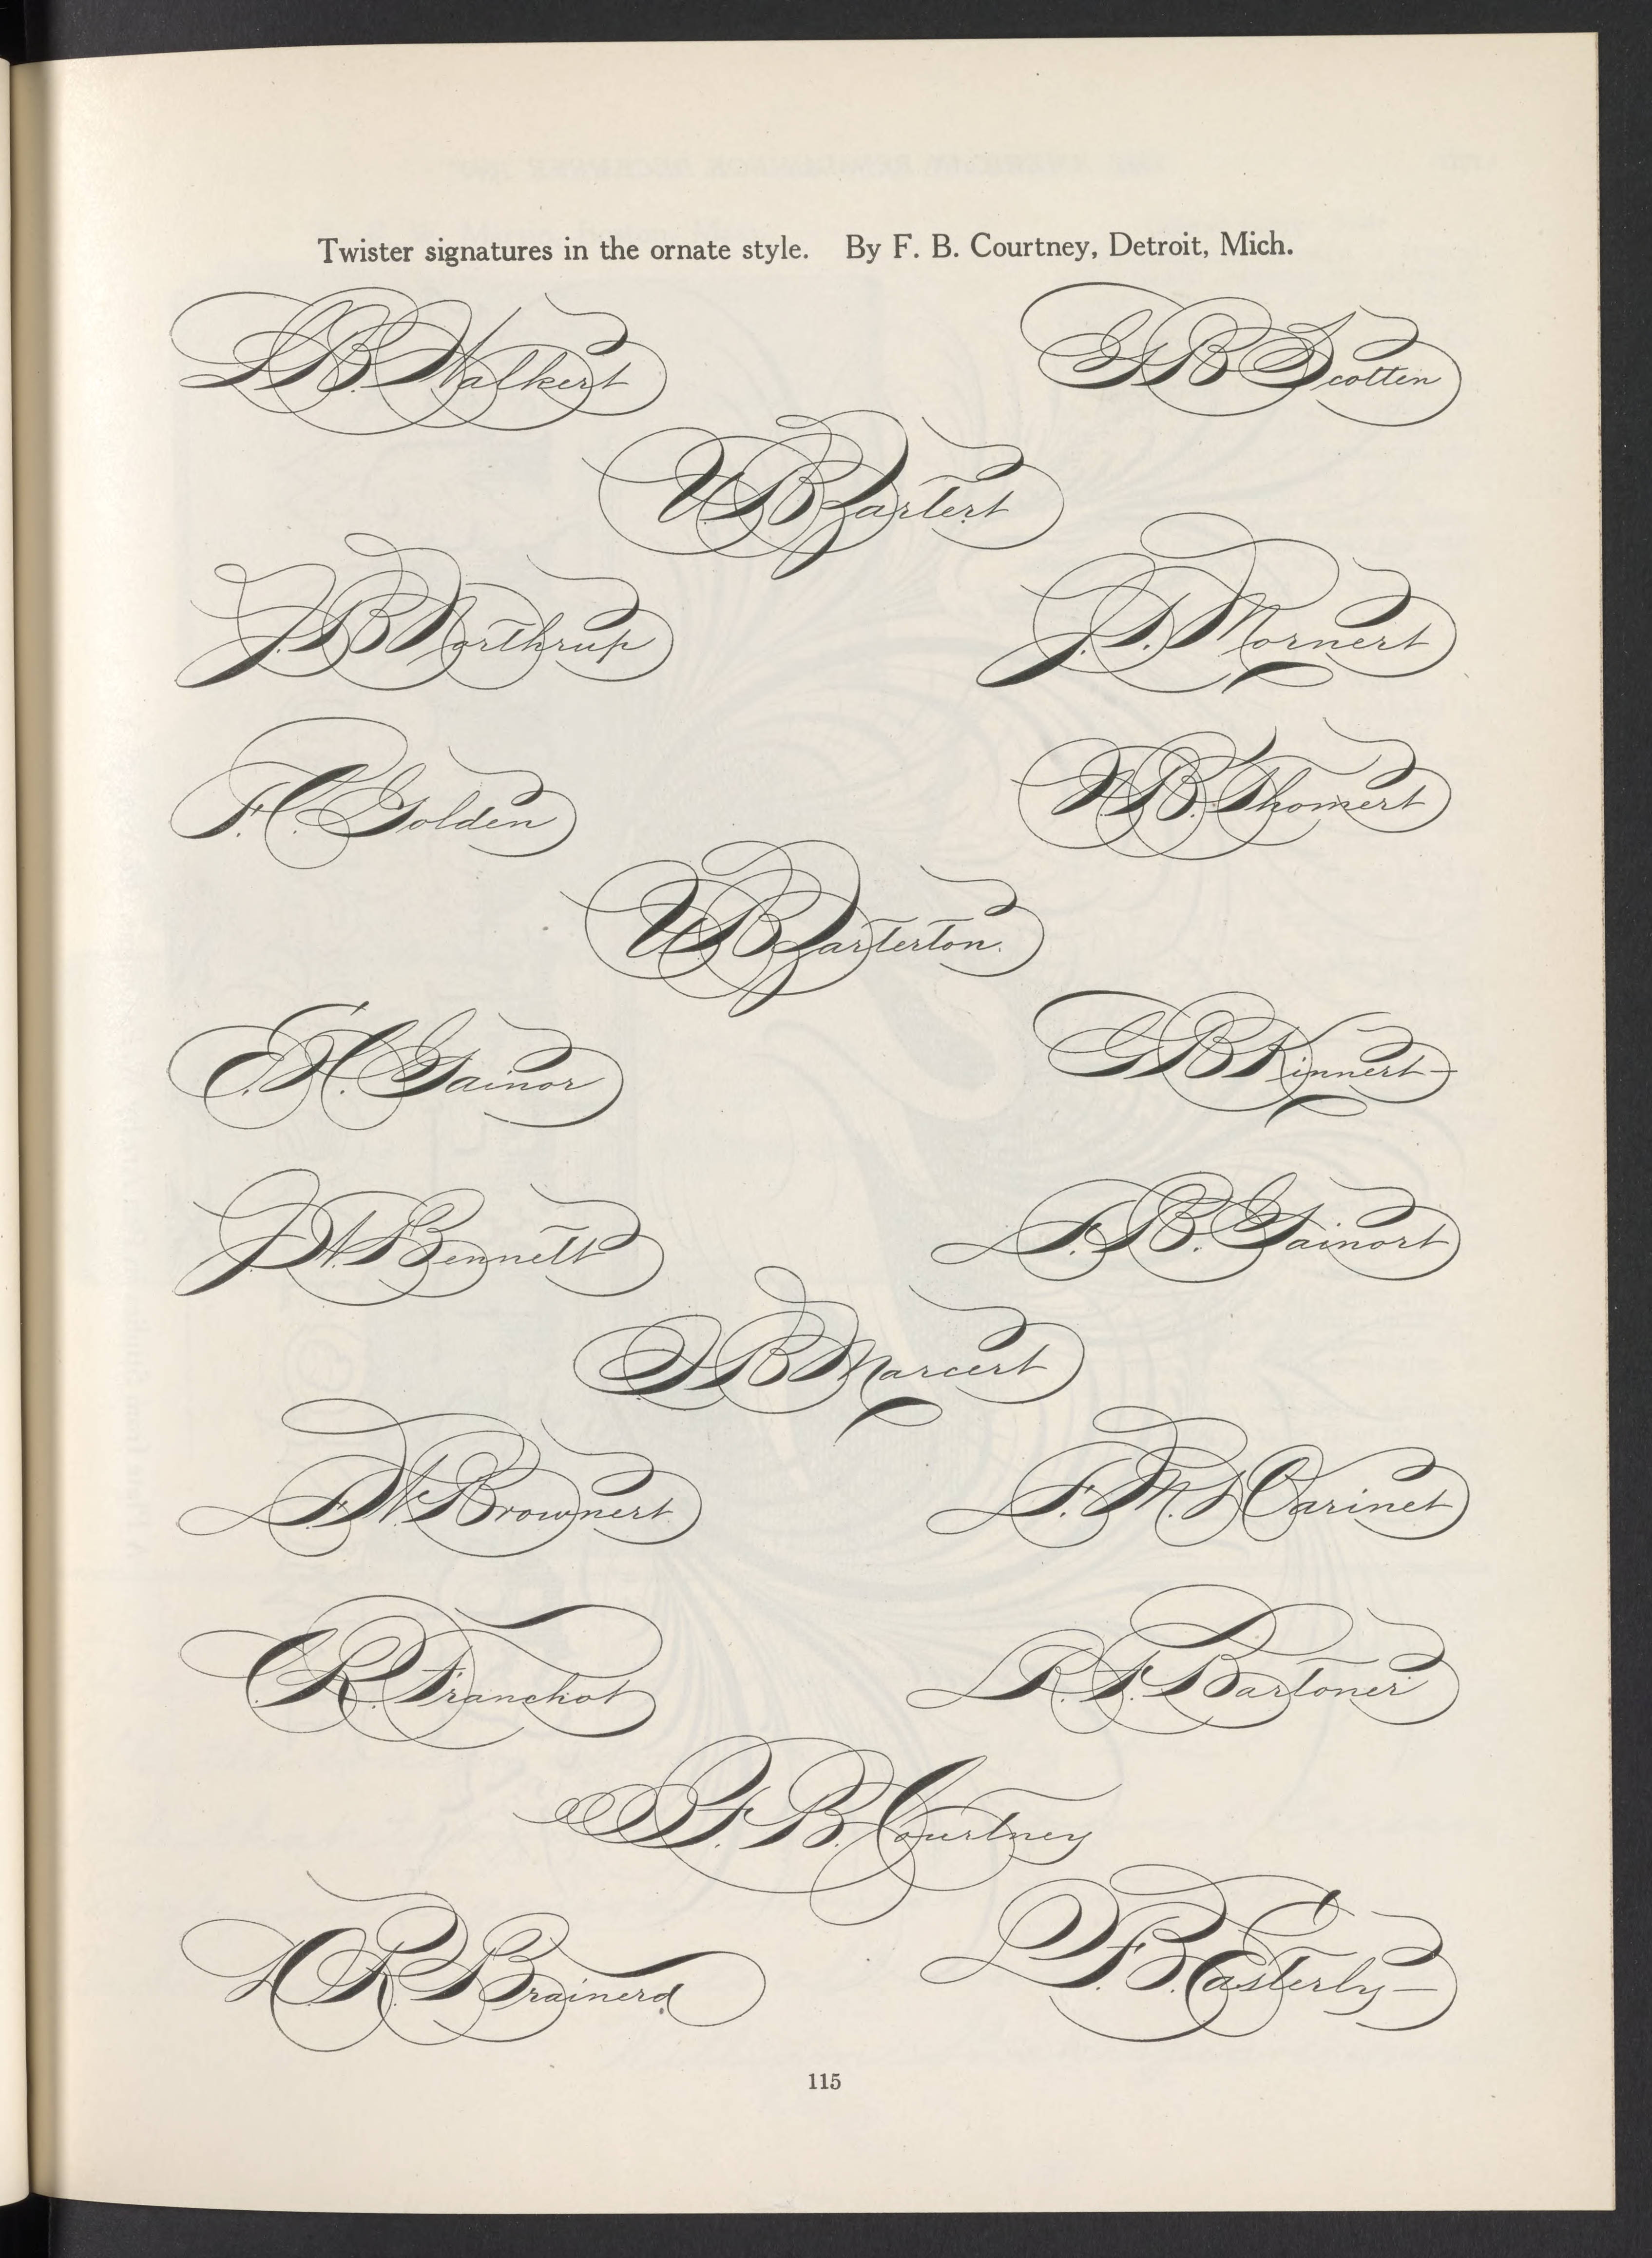 Twister signatures in the ornate style. By F. B. Courtney, Detroit, Mich.
S. B. Walkert
G B Scotten
U. B. Zartert
J. B. Northrup
J. S. Mornert
F. C. Golden
W. B. Thomert
U. B. Zarterton.
E. H. Gainor
G B Kinnert
J. A. Bennett
F. B. Gainort
S B Marcert
F. W. Brownert.
F. M. Carinet
C. R. Franchot
R. F. Bartoner
F. B. Courtney
H. R. Brainerd
F. B. Easterly
115